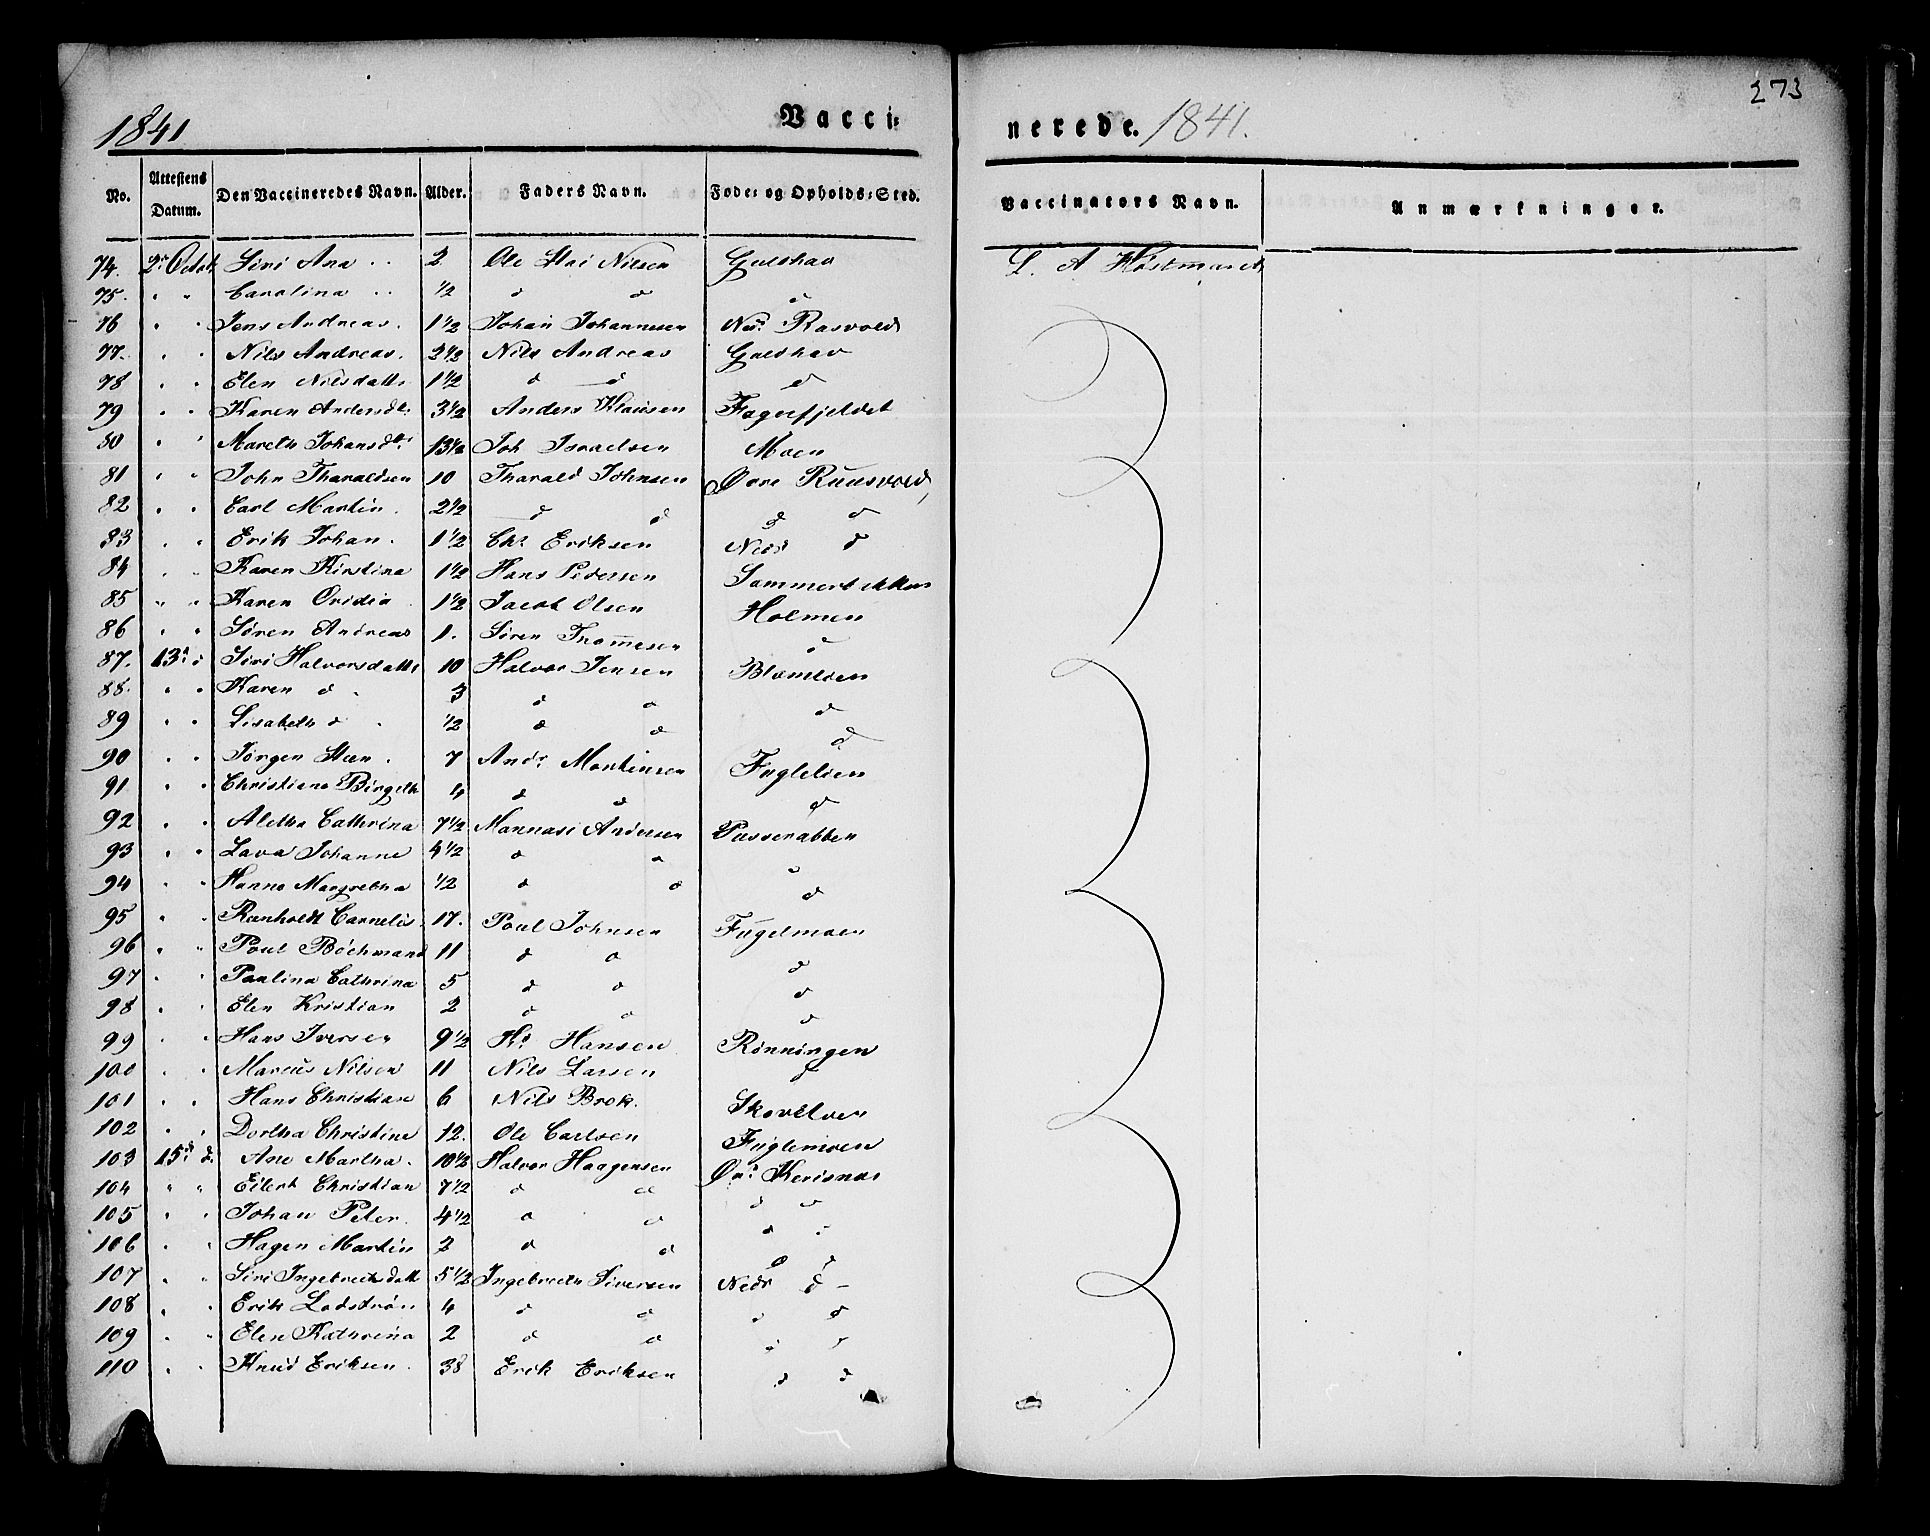 273
1841 Vacci=
nerede. 1841.
No. Attestens Datum. Den Vaccineredes Navn. Alder. Faders Navn. Føde= og Opholds=Sted. Vaccinators Navn. Anmærkninger.
74. 2. Octob Siri Ana 2 Ole Nilsen Galshav L. A Høstmarck
75. " " Carolina 1/2 d d d
76 " " Jens Andreas. 1 1/2 Johan Johannesen Ned: Rasvold
77. " " Nils Andreas. 2 1/2 Nils Andreas Galshav
78 " " Elen Nilsdatt: 1 1/2 d d d
79 " " Karen Andersdt: 3 1/2 Anders Klausen Fagerfjeldet
80 " " Mareth Johansdt: 13 1/2 Joh Israelsen Moen
81 " " John Tharaldsen 10 Tharald Johnsen Øvre Ruusvold
82 " " Carl Martin. 2 1/2 d d d d
83 " " Erik Johan. 1 1/2 Chr Eriksen Nedr d
84 " " Karen Kirstina 1 1/2 Hans Pedersen
85 " " Karen Ovidia 1 1/2 Jacob Olsen Holmen
86 " " Søren Andreas 1. Sören Thom̅esen d
87. 13. d Siri Halvorsdatt: 10 Halvor Jensen
88. " " Karen d 3 d d d
89 " " Lisabeth d 1/2 d d d
90 " " Jørgen 7 Andr. Martinsen Fuglelien
91 " " Christiana Birgith 4 d d d
92 " " Aletha Cathrina 7 1/2 Mannasi Andersen
93 " " Lava Johanne 4 1/2 d d d
94 " " Hanna Margretha 1/2 d d d
95 " " Rænholdt Cornelis 17. Poul Johnsen Fugelmoen
96 " " Poul Böchmand 11 d d d
97 " " Paulina Cathrina 5 d d d
98 " " Elen Kristian 2 d d d
99 " " Hans Iversen 9 1/2 Hansen Rönningen
100 " " Marcus Nilsen 11 Nils Larsen d
101 " " Hans Christian 6 Nils Brok. Skovelven
102 " " Dortha Christina 12. Ole Carlsen Fuglemoen
103 15. d. Ane Martha. 10 1/2 Halvor Haagensen Øv: Kerisnas
104 " " Eilert Christian 7 1/2 d d d d
105 " " Johan Peter. 4 1/2 d d d d
106 " " Hagen Martin 2 d d d d
107 " " Siri Ingebrectsdatt 5 1/2 Ingebrecth Siversen Nedr d
108 " " Erik Ladström 4 d d d d
109 " " Elen Kathrina 2 d d d d
110 " " Knud Eriksen. 38 Erik Eriksen d d